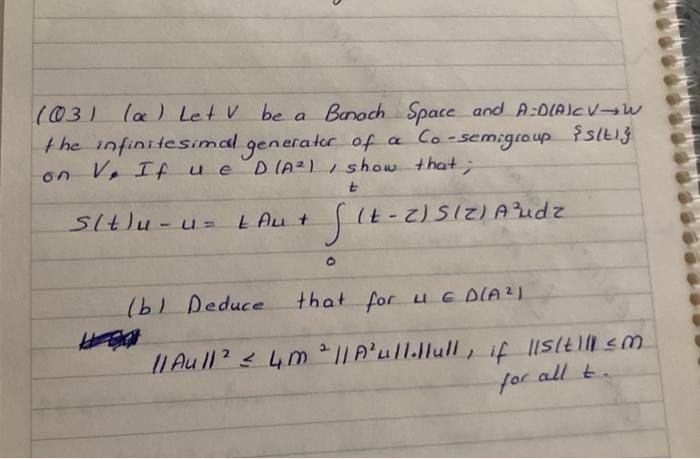 (Q3) (a) Let V be a Banach Space and A:D(A)⊂V→W
the infinitesimal generator of a Co-semigroup {S(t)}
on V. If u ∈ D(A²), show that;
S(t)u - u = t Au + ∫₀ᵗ (t-z) S(z) A²u dz
(b) Deduce that for u ∈ D(A²)
||Au||² ≤ 4m² ||A²u||.||u||, if ||S(t)|| ≤ m
for all t.